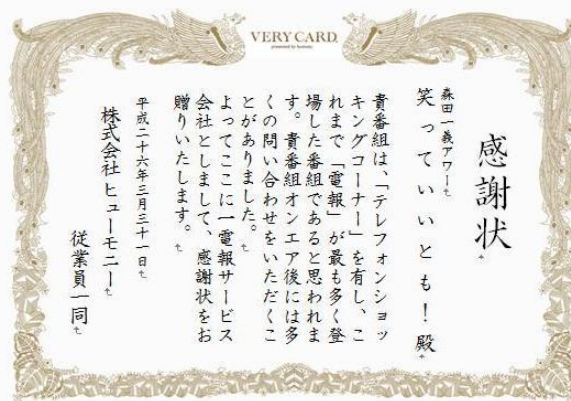 VERY CARD.
presented by humony
感謝状
森田一義アワー
笑っていいとも！ 殿
貴番組は、「テレフォンショッ
キングコーナー」を有し、こ
れまで「電報」が最も多く登
場した番組であると思われま
す。貴番組オンエア後には多
くの問い合わせをいただくこ
とがありました。
よってここに一電報サービス
会社としまして、感謝状をお
贈りいたします。
平成二十六年三月三十一日
株式会社ヒューモニー
従業員一同